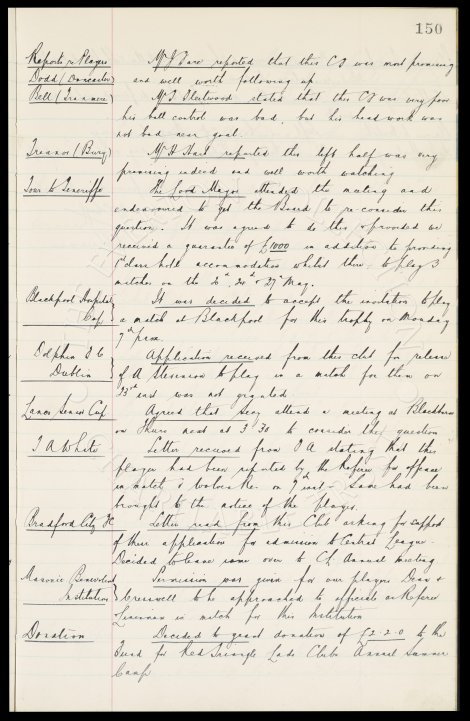 150
Reports re Players Mr J Dare reported that this CF was most promising
Dodd (Doncaster) and well worth following up.
Bell (Tranmere) Mr T Fleetwood stated that this CF was very poor
his ball control was bad, but his head work was
not bad near goal.
Treanor (Bury) Mr H Hare reported this left half was very
promising indeed and well worth watching
Tour to Teneriffe The Lord Mayor attended the meeting and
endeavoured to get the Board to re-consider this
question. It was agreed to do this, & provided we
received a guarantee of £1000 in addition to providing
1st class hotel accommodation whilst there - to play 3
matches on the 20th, 24th & 27th May.
Blackpool Hospital It was decided to accept the invitation to play
Cup a match at Blackpool for this trophy on Monday
7th prox.
Dolphin F C Application received from this club for release
Dublin of A Stevenson to play in a match for them on
23rd and was not granted.
Lancs Senior Cup Agreed that Secy attend a meeting at Blackburn
on Thurs next at 3.30 to consider this question
T A White Letter received from F A stating that this
player had been reported by the Referee for offence
in match v Wolves &c. on 9 inst - Same had been
brought to the notice of the player.
Bradford City FC Letter read from this Club asking for support
of their application for admission to Central League
Decided to leave same over to CL Annual meeting
Masonic Benevolent Permission was given for our players Dean &
Institution Cresswell to be approached to officiate as Referee
Linesman in match for this Institution
Donation Decided to grant donation of £2-2-0 to the
Fund for Red Triangle Lads Clubs Annual Summer
Camp